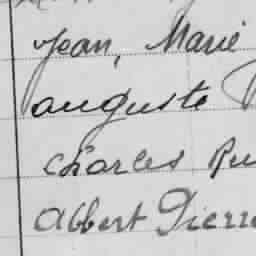 Jean, Marie
auguste
Charles
Albert Pierre